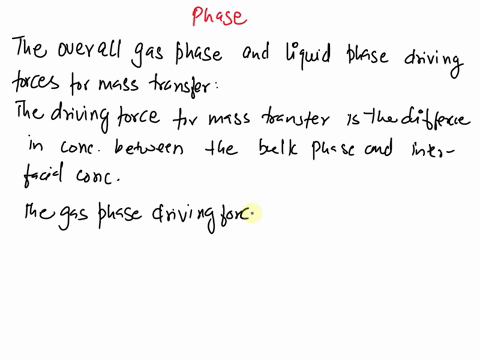 Phase
The overall gas phase and liquid phase driving
forces for mass transfer:
The driving force for mass transfer is the differece
in conc. between the bulk phase and inter-
facial conc.
The gas phase driving forc.